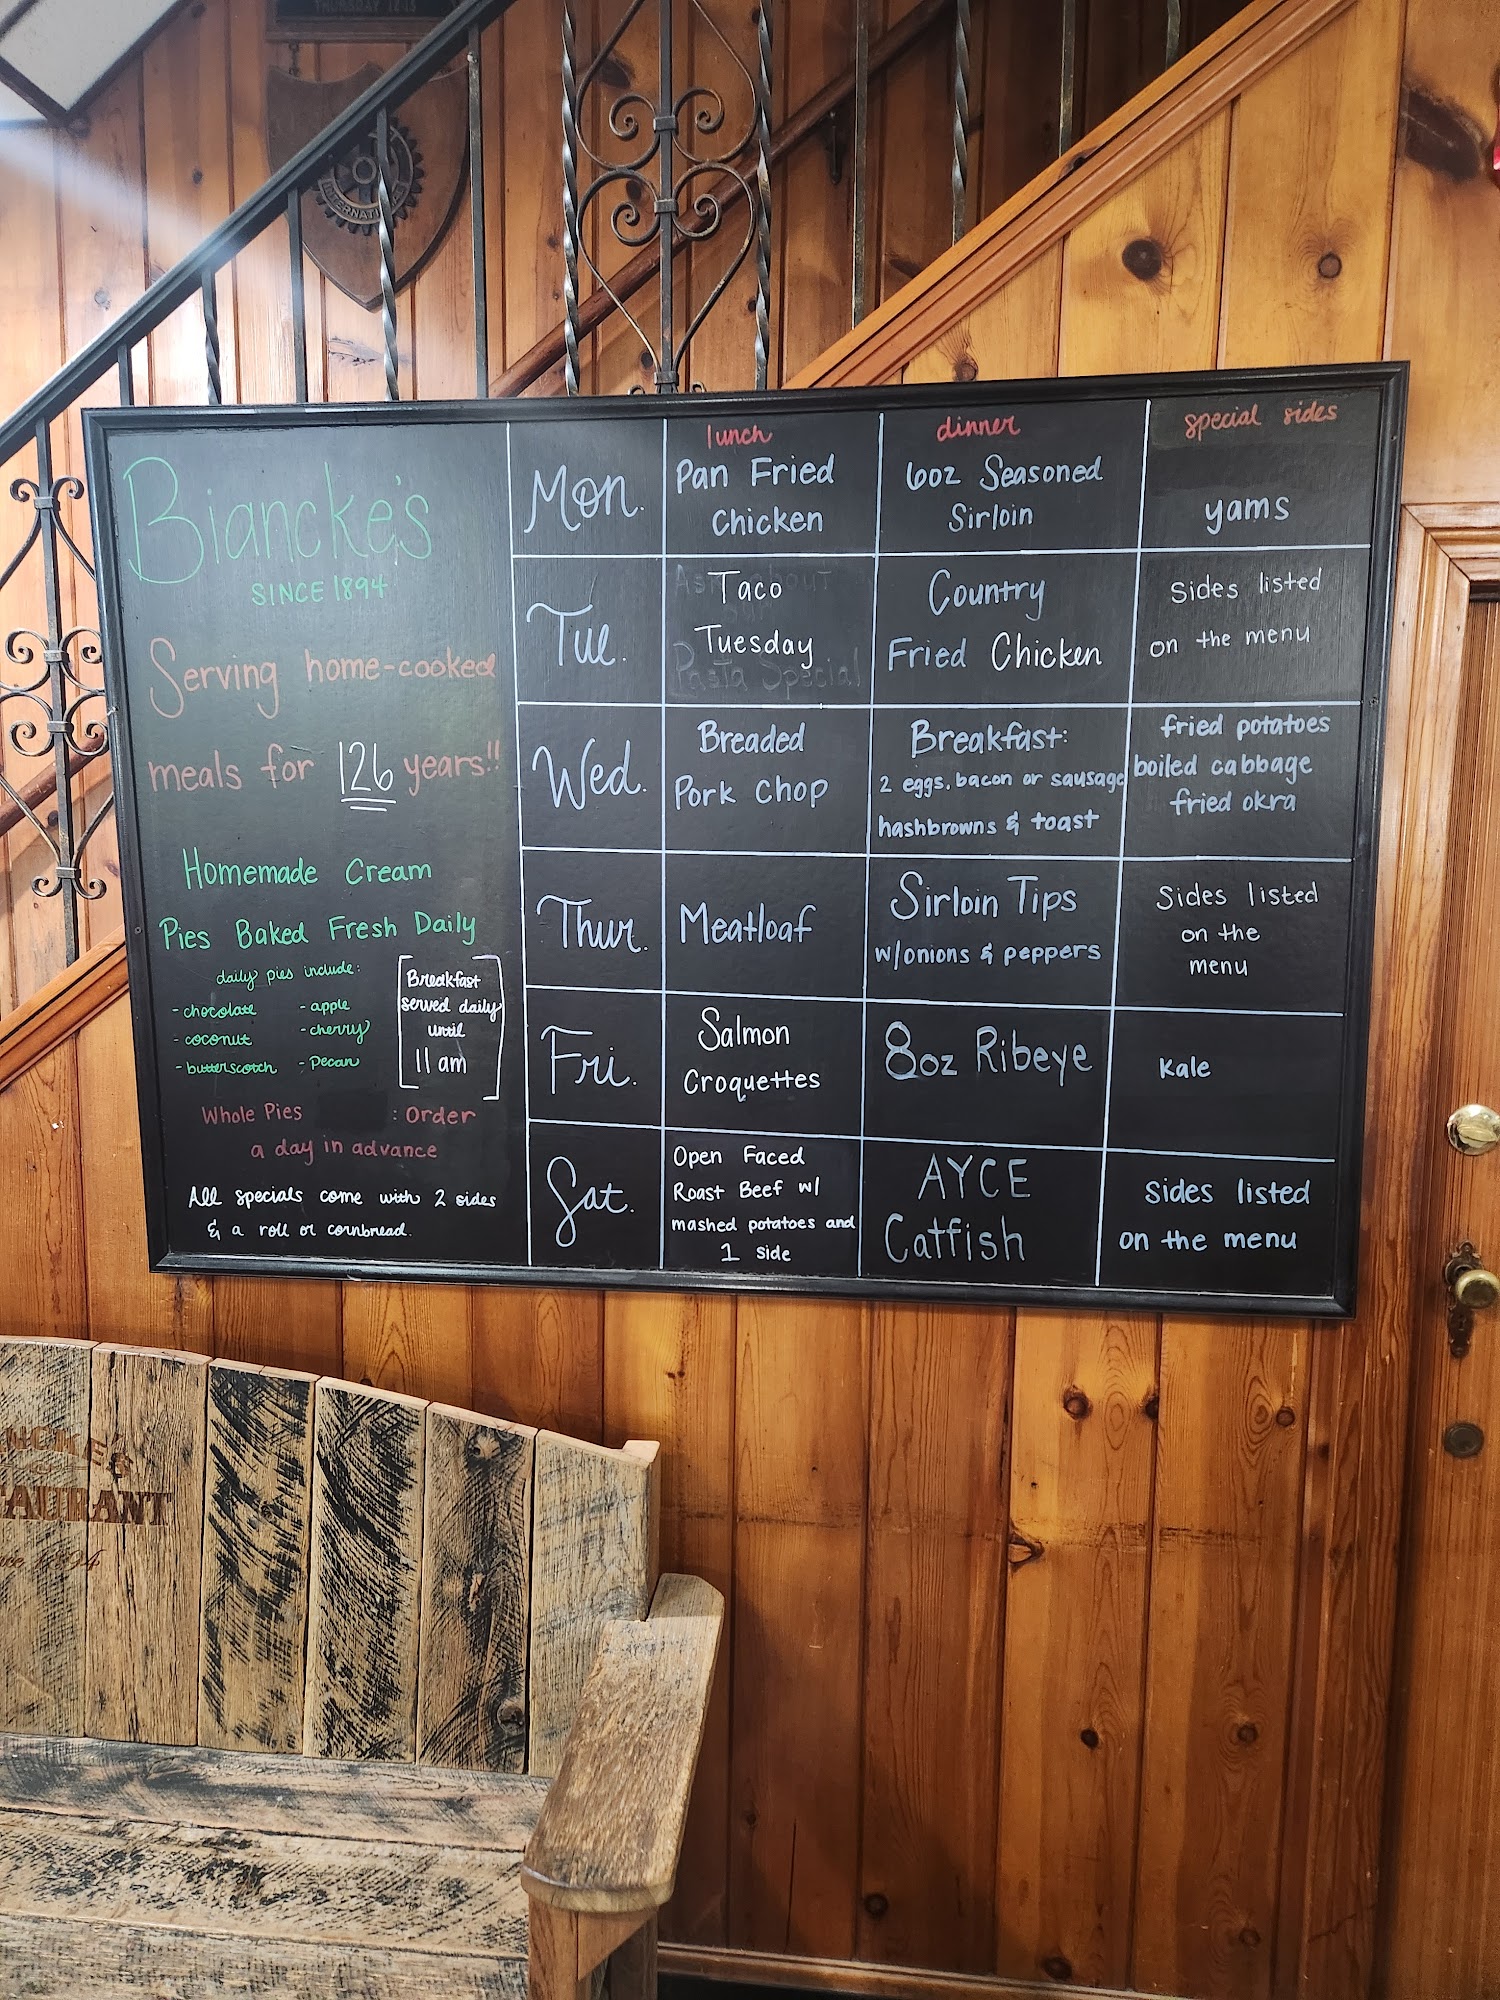 THURSDAY 12:15
INTERNATIONAL
Biancke's
SINCE 1894
Serving home-cooked
meals for 126 years!!
Homemade Cream
Pies Baked Fresh Daily
daily pies include:
- chocolate
- coconut
- butterscotch
- apple
- cherry
- Pecan
Breakfast
served daily
until
11 am
Whole Pies : Order
a day in advance
All specials come with 2 sides
& a roll or cornbread.
lunch
dinner
special sides
Mon.
Pan Fried
Chicken
6oz Seasoned
Sirloin
yams
Tue.
Taco
Tuesday
Ask about
Pasta Special
Country
Fried Chicken
Sides listed
on the menu
Wed.
Breaded
Pork Chop
Breakfast:
2 eggs, bacon or sausage
hashbrowns & toast
fried potatoes
boiled cabbage
fried okra
Thur.
Meatloaf
Sirloin Tips
w/onions & peppers
Sides listed
on the
menu
Fri.
Salmon
Croquettes
8oz Ribeye
Kale
Sat.
Open Faced
Roast Beef w/
mashed potatoes and
1 side
AYCE
Catfish
Sides listed
on the menu
NCKE'S
TAURANT
1894